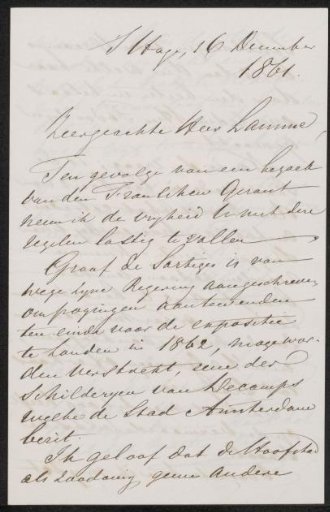 's Hage, 16 December
1861.
Zeergeachte Heer Lamme,
Ten gevolge van een bezoek
van den Franschen Gezant
neem ik de vrijheid U met deze
regelen lastig te vallen
Graaf de Sartiges is van
wege zijne Regering aangeschreven,
om pogingen aantewenden
ten einde voor de expositie
te houden in 1862, moge wor-
den verstrekt, eene der
Schilderyen van Decamps
welke de Stad Amsterdam
bezit.
Ik geloof dat de Hoofdstad
als zoodanig, geene andere